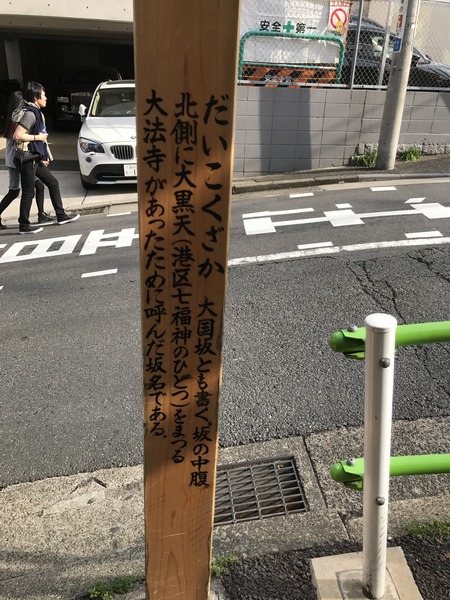 だいこくざか
大国坂とも書く、坂の中腹
北側に大黒天(港区七福神のひとつ)をまつる
大法寺があったために呼んだ坂名である。
安全✚第一